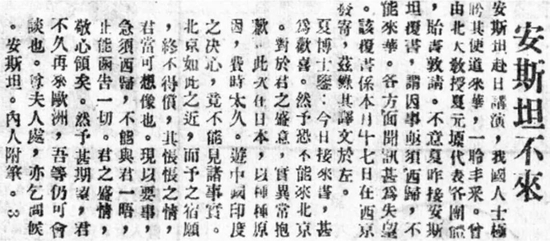 安斯坦不來
安斯坦赴日講演，我國人士極
盼其便道來華，一聆丰采。曾
由北大教授夏元瑮代表各團體
，貽書敦請。不意夏昨接安斯
坦覆書，謂因事亟須西歸，不
能來華。各方面聞訊甚爲失望
。該覆書係本月十七日在西京
發寄，茲錄其譯文於左。
夏博士鑒：今日接來書，甚
爲歡喜。然予恐不能來北京
。對於君之盛意，實異常抱
歉。此次在日本，以種種原
因，費時太久。遊中國印度
之決心，竟不能見諸事實。
北京如此之近，而予之宿願
，終不得償，其悵悵之情，
君當可想像也。現以要事，
急須西歸，不能與君一晤，
止能函告一切。君之盛情，
敬心領矣。然予甚期望，君
不久再來歐洲，吾等仍可會
談也。尊夫人處，亦乞問候
。安斯坦。內人附筆。